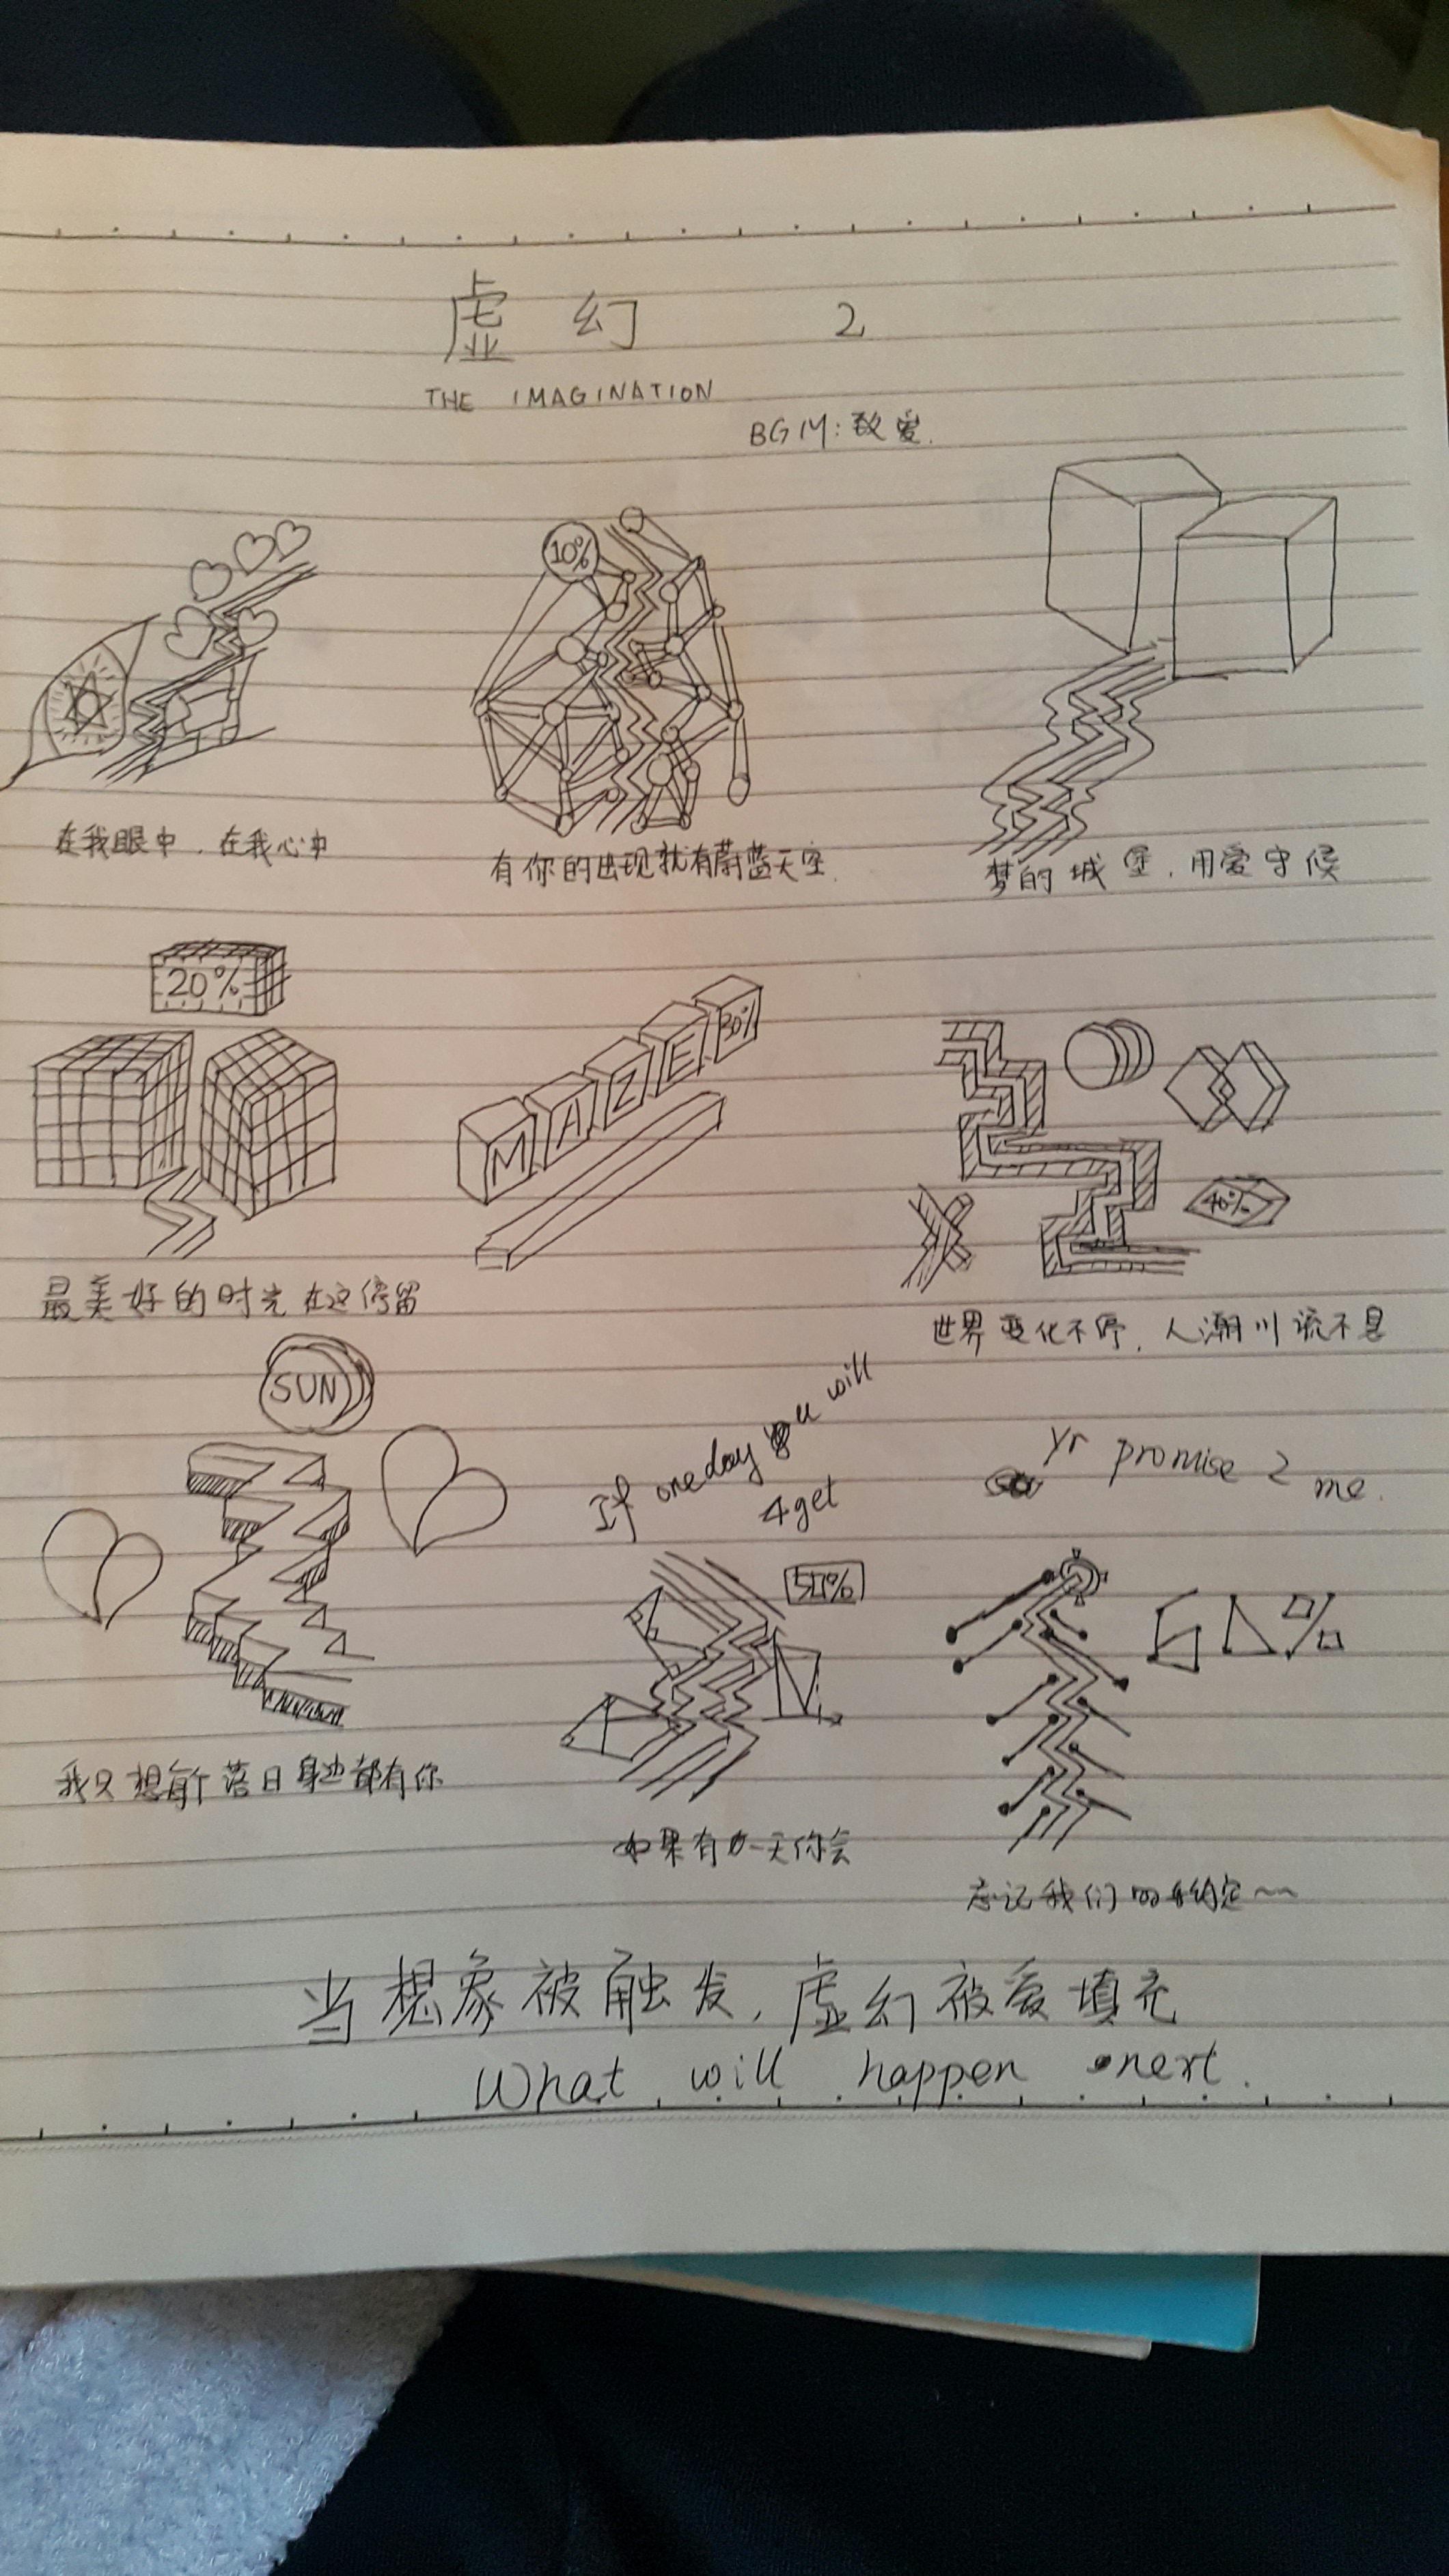 虚幻 2
THE IMAGINATION
BGM:致爱.
10%
在我眼中.在我心中
有你的出现就有蔚蓝天空.
梦的城堡.用爱守候
20%
MAZE 30%
40%
最美好的时光在这停留
世界变化不停.人潮川流不息
SUN
If one day you will
4get
yr promise 2 me.
50%
60%
我只想每个落日身边都有你
如果有一天你会
忘记我们的约定~~
当想象被触发,虚幻被爱填充
What will happen next.